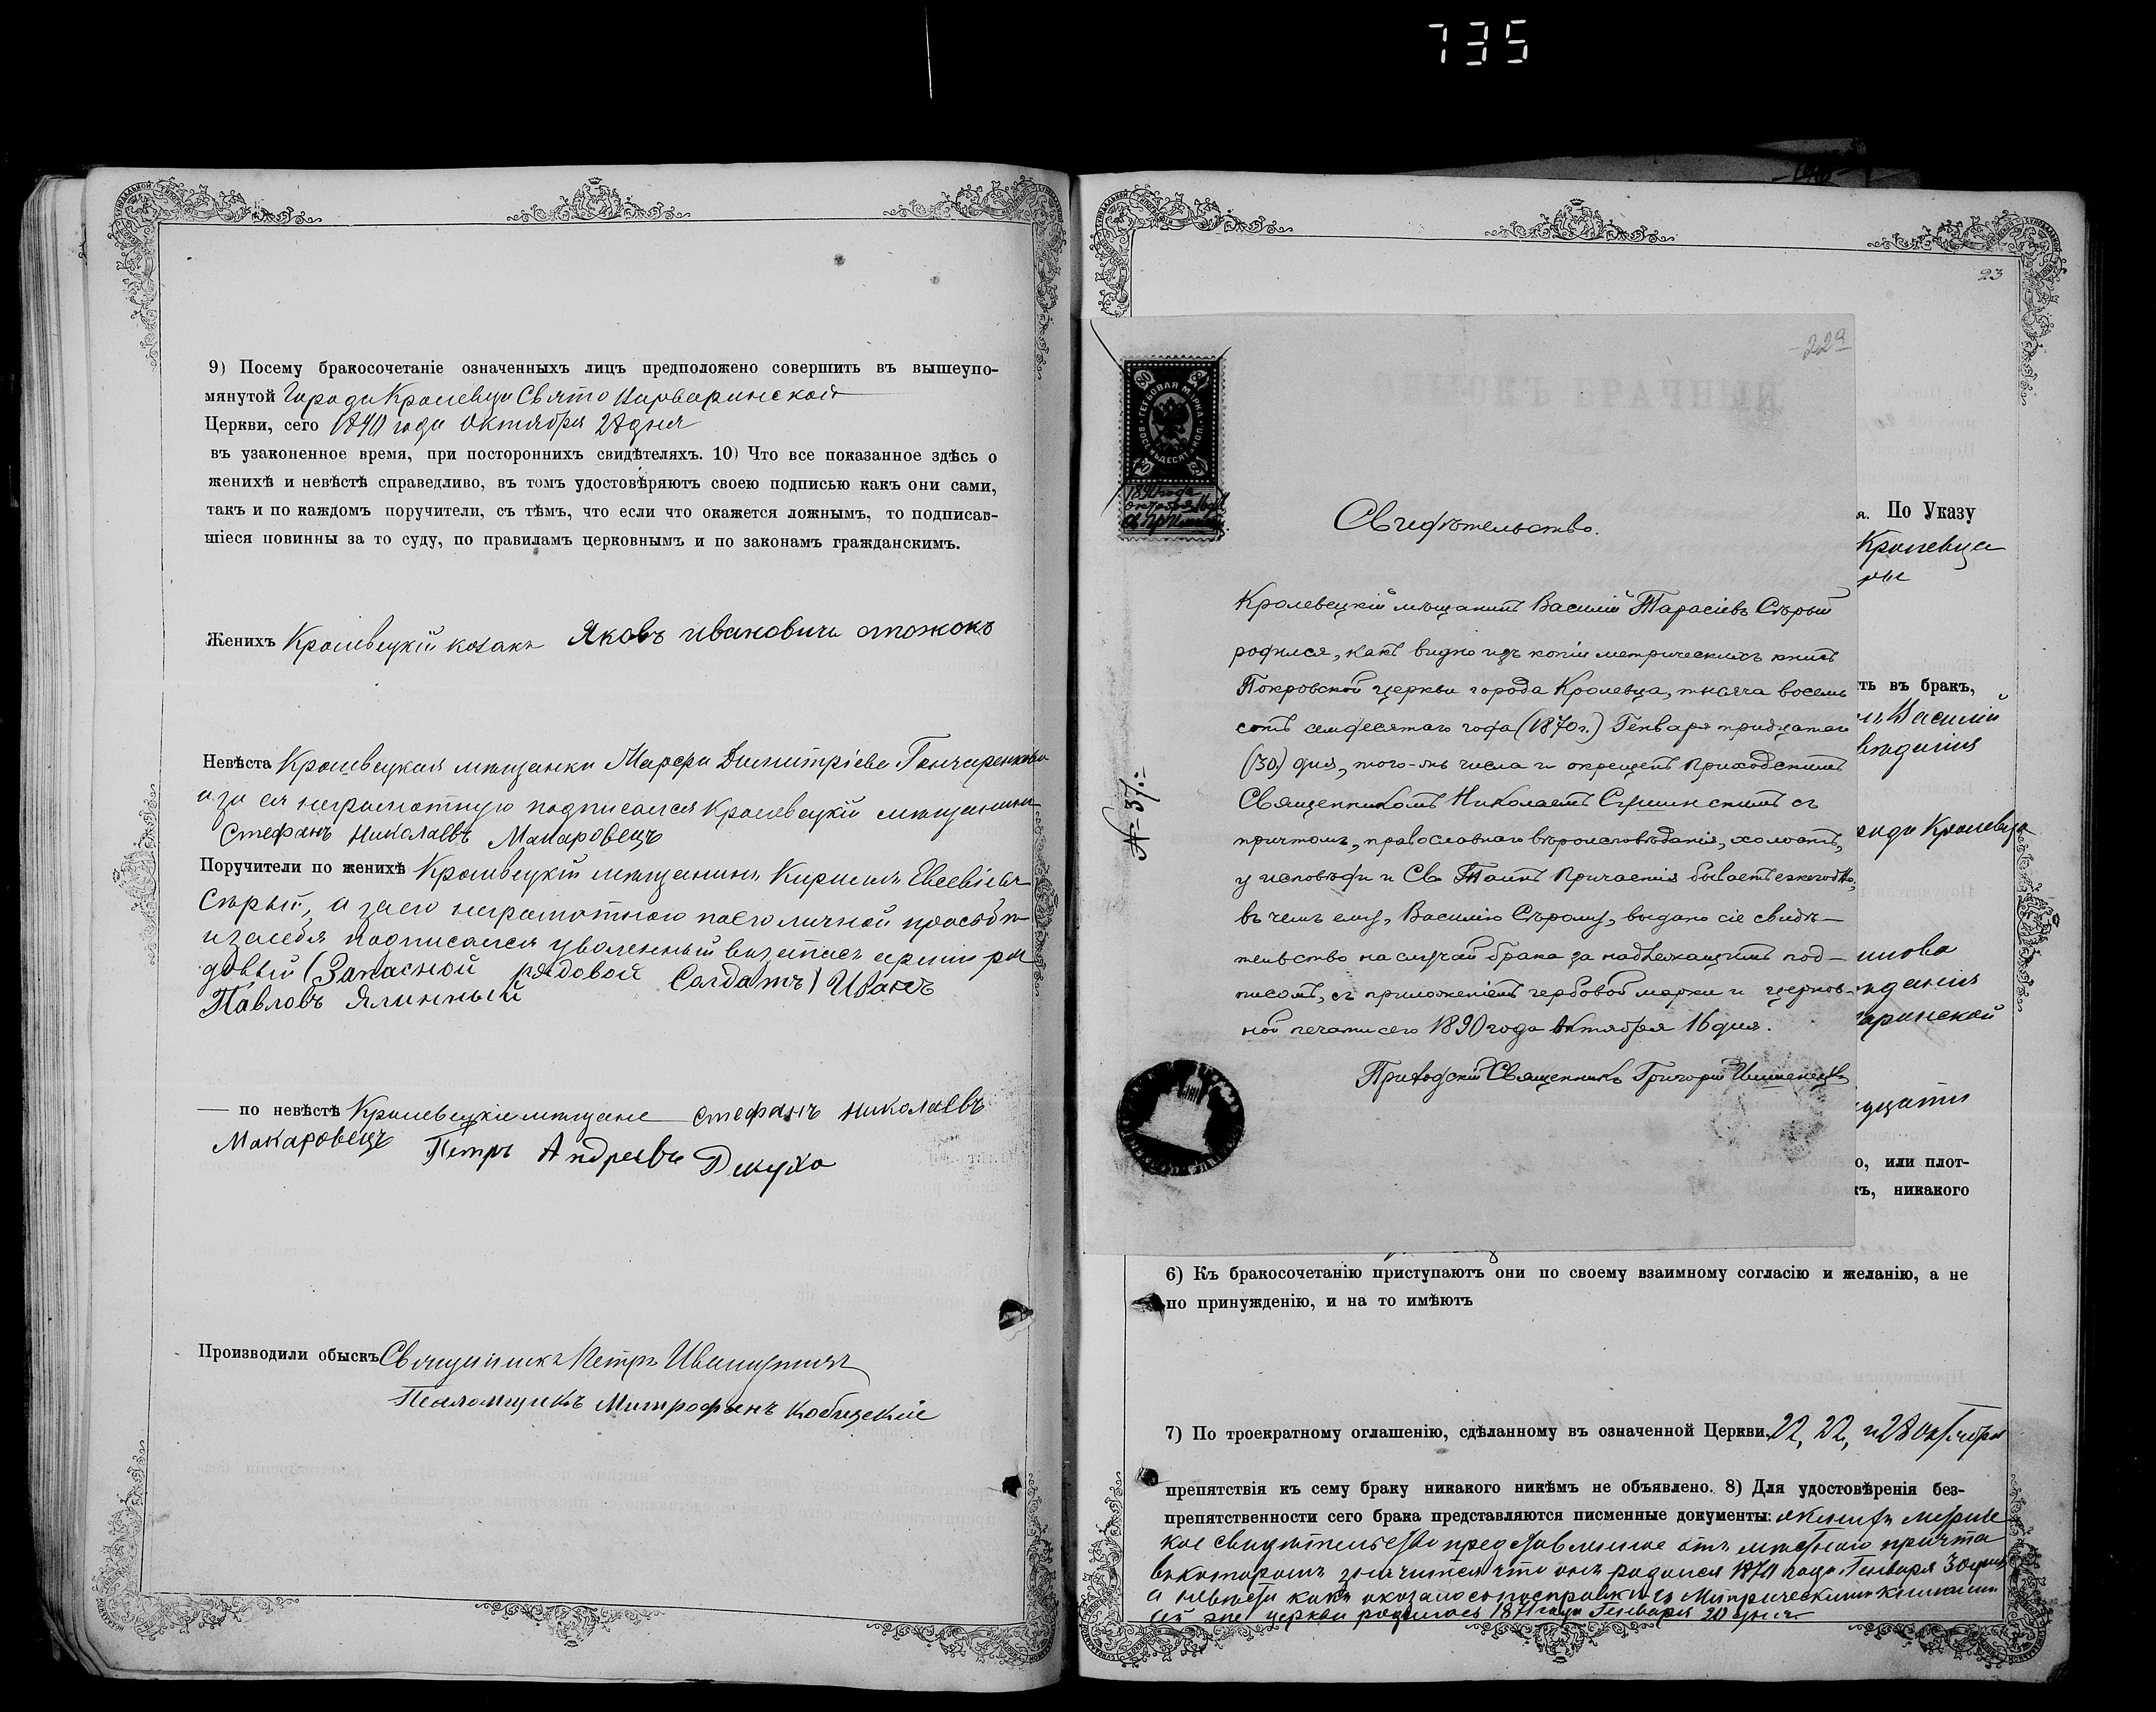 735
9) Посему бракосочетаніе означенныхъ лицъ предположено совершить въ вышеупо-
мянутой Города Кролевца Свято Варваринской
Церкви, сего 1890 года Октября 28 дня
въ узаконенное время, при постороннихъ свидѣтеляхъ. 10) Что все показанное здѣсь о
женихѣ и невѣстѣ справедливо, въ томъ удостовѣряютъ своею подписью какъ они сами,
такъ и по каждомъ поручители, съ тѣмъ, что если что окажется ложнымъ, то подписав-
шіеся повинны за то суду, по правиламъ церковнымъ и по законамъ гражданскимъ.
Женихъ Кролевецкій козакъ Яковъ ивановичъ
Невѣста Кролевецкая мѣщанка Марфа Димитріева Гончаренкова
а за ея неграмотную подписался Кролевецкій мѣщанинъ
Стефанъ Николаевъ Макаровецъ
Поручители по женихѣ Кролевецкій мѣщанинъ Кириллъ Евсевіевъ
Сѣрый, а за его неграмотного по его личной прозьбѣ
и за себя подписался уволенный въ запасъ арміи ря
довый (Запасной рядовой Солдатъ) Иванъ
Павловъ Ялинный
— по невѣстѣ Кролевецкіе мѣщане Стефанъ Николаевъ
Макаровецъ Петръ Андреевъ
Производили обыскъ Священникъ Петръ
Псаломщикъ Митрофанъ
23
229
ГЕРБОВАЯ МАРКА
ВОСЕМЬДЕСЯТЪ КОП.
80
1890 года
октября 16 дня
№ 37.
Свидѣтельство.
Кролевецкій мѣщанинъ Василій Тарасіевъ Сѣрый
родился, какъ видно изъ копіи метрическихъ книгъ
Покровской церкви города Кролевца, тысяча восемь
сотъ семдесятаго года (1870 г.) Генваря тридцатаго
(30) дня, того-жъ числа и окрещенъ Приходскимъ
Священникомъ Николаемъ съ
причтомъ, православнаго вѣроисповѣданія, холостъ,
у исповѣди и Св. Таинъ Причастія бываетъ ежегодно,
въ чемъ ему, Василію Сѣрому, выдано сіе свидѣ-
тельство на случай брака за надлежащимъ под-
писомъ, съ приложеніемъ гербовой марки и церков-
ной печати сего 1890 года Октября 16 дня.
Приходскій Священникъ Григорій
я. По Указу
Кролевца
ть въ бракъ,
Василій
города Кролевца
о, или плот-
къ, никакого
6) Къ бракосочетанію приступаютъ они по своему взаимному согласію и желанію, а не
по принужденію, и на то имѣютъ
7) По троекратному оглашенію, сдѣланному въ означенной Церкви 22, и 28 октября
препятствія къ сему браку никакого никѣмъ не объявлено. 8) Для удостовѣренія без-
препятственности сего брака представляются писменные документы: о женихѣ метриче
кое свидѣтельство представленное отъ мѣстного причта
въ которомъ значится что онъ родился 1870 года Генваря 30 дня
а невѣста какъ оказалось по справкѣ съ Метрическими книгами
сей же церкви родилась 1871 года Генваря 20 дня